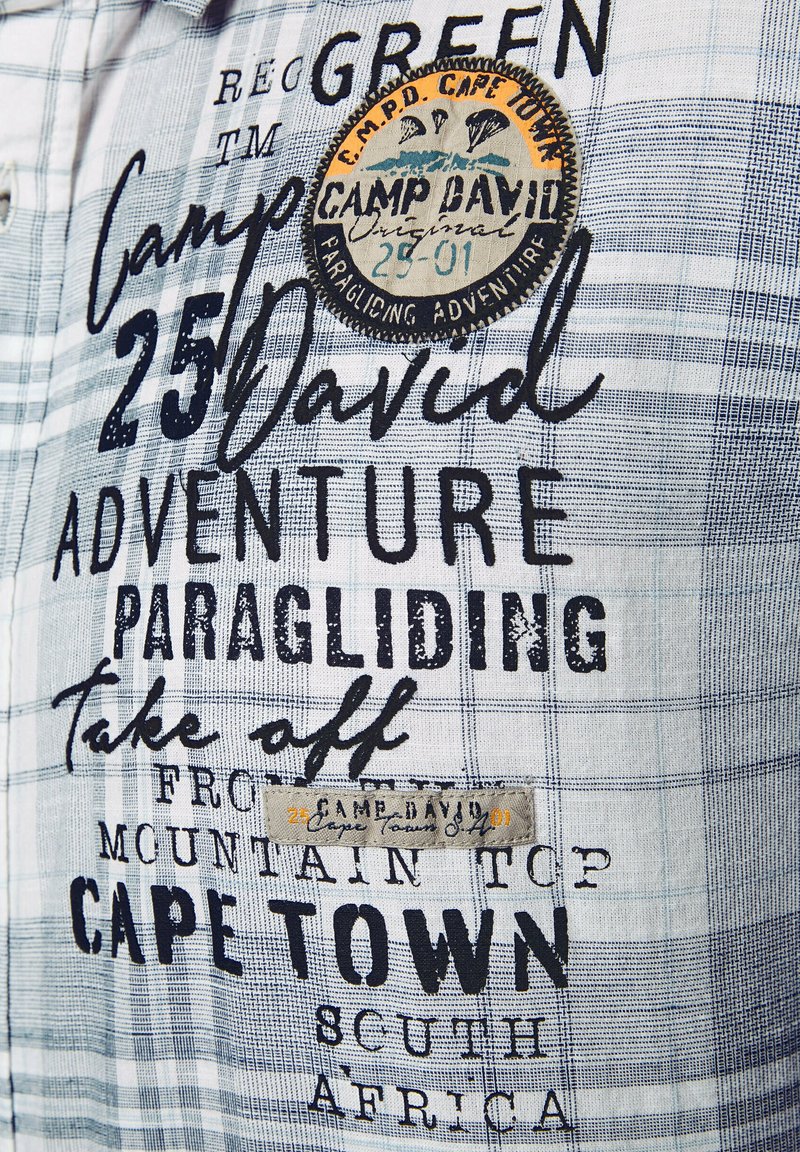 REG GREEN
TM
C.M.P.D. CAPE TOWN
CAMP DAVID
Original
25-01
PARAGLIDING ADVENTURE
Camp
25 David
ADVENTURE
PARAGLIDING
Take off
FROM THE
25 CAMP DAVID 01
Cape Town S.A.
MOUNTAIN TOP
CAPE TOWN
SOUTH
AFRICA